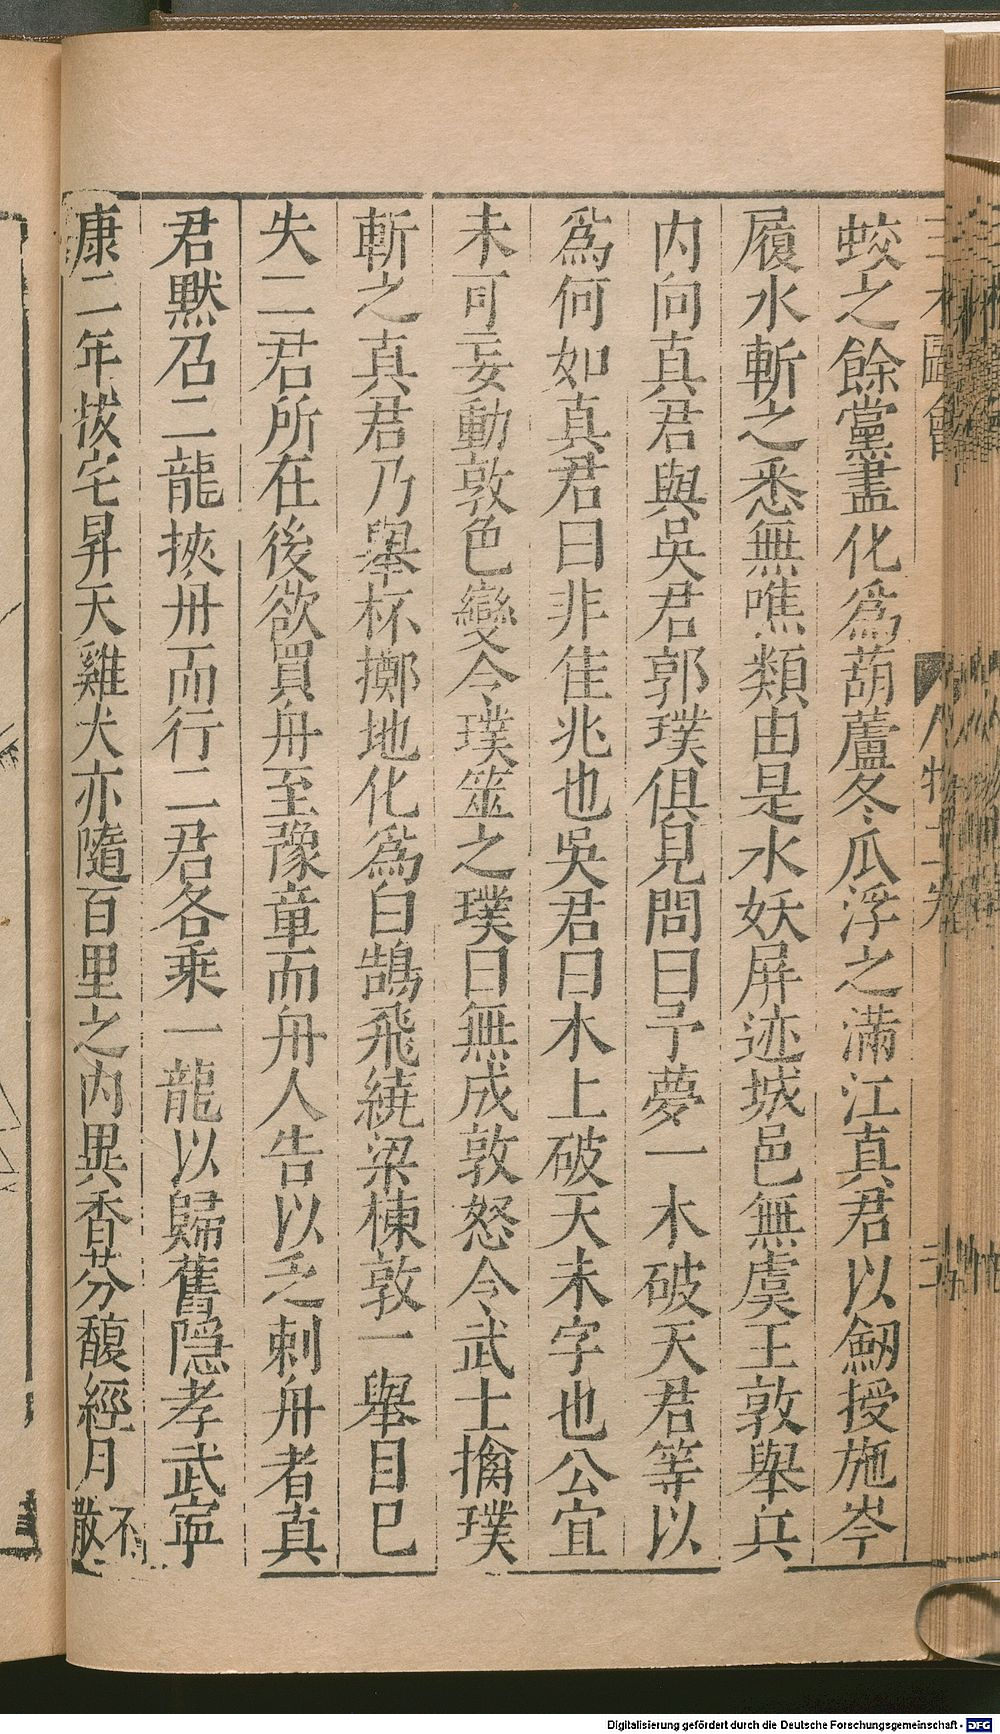 三才圖會
人物十一卷
三
蛟之餘黨盡化爲葫蘆冬瓜浮之滿江真君以劒授施岑
履水斬之悉無噍類由是水妖屏迹城邑無虞王敦舉兵
内向真君與吳君郭璞俱見問曰予夢一木破天君等以
爲何如真君曰非佳兆也吳君曰木上破天未字也公宜
未可妄動敦色變令璞筮之璞曰無成敦怒令武士擒璞
斬之真君乃舉杯擲地化爲白鵠飛繞梁棟敦一舉目已
失二君所在後欲買舟至豫章而舟人告以乏刺舟者真
君默召二龍挾舟而行二君各乘一龍以歸舊隠孝武寧
康二年拔宅昇天雞犬亦隨百里之内異香芬馥經月不散
Digitalisierung gefördert durch die Deutsche Forschungsgemeinschaft - DFG